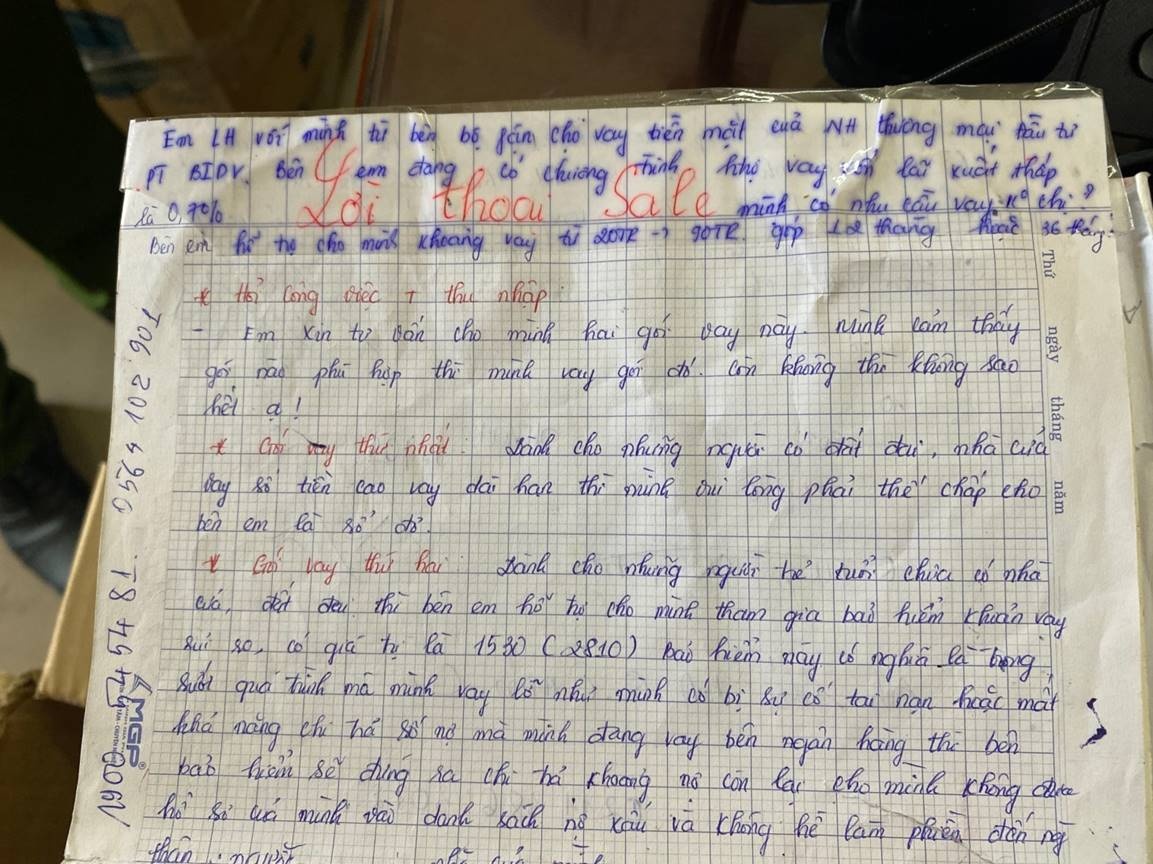 Em LH với mình từ bên bộ fận cho vay tiền mặt của NH thương mại đầu tư
PT BIDV. Bên em đang có chương trình hhọ vay vốn lãi xuất thấp
Lời thoại Sale
là 0,7% mình có nhu cầu vay k⁰ chị ?
Bên em hỗ trợ cho mình khoảng vay từ 20TR → 90TR. góp 12 tháng hoặc 36 tháng.
* Hỏi công việc + thu nhập
- Em xin tư vấn cho mình hai gói vay này. Mình cảm thấy
gói nào phù hợp thì mình vay gói đó. Còn không thì không sao
hết ạ!
* Gói vay thứ nhất: Dành cho những người có đất đai, nhà cửa
vay số tiền cao vay dài hạn thì mình vui lòng phải thế chấp cho
bên em là sổ đỏ.
* Gói vay thứ hai: Dành cho những người trẻ tuổi chưa có nhà
cửa, đất đai thì bên em hỗ trợ cho mình tham gia bảo hiểm khoản vay
rủi ro, có giá trị là 1530 (2810) Bảo hiểm này có nghĩa là trong
suốt quá trình mà mình vay lỡ như mình có bị sự cố tai nạn hoặc mất
khả năng chi trả số nợ mà mình đang vay bên ngân hàng thì bên
bảo hiểm sẽ đứng ra chi trả khoảng nợ còn lại cho mình không đưa
hồ sơ của mình vào danh sách nợ xấu và không hề làm phiền đến ng
thân, người
Thứ ngày tháng năm
1900 54 54 81. 0564 102 901
MGP